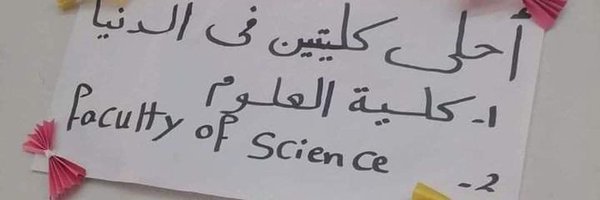 أحلى كليتين فى الدنيا
1- كلية العلوم
2- Faculty of Science